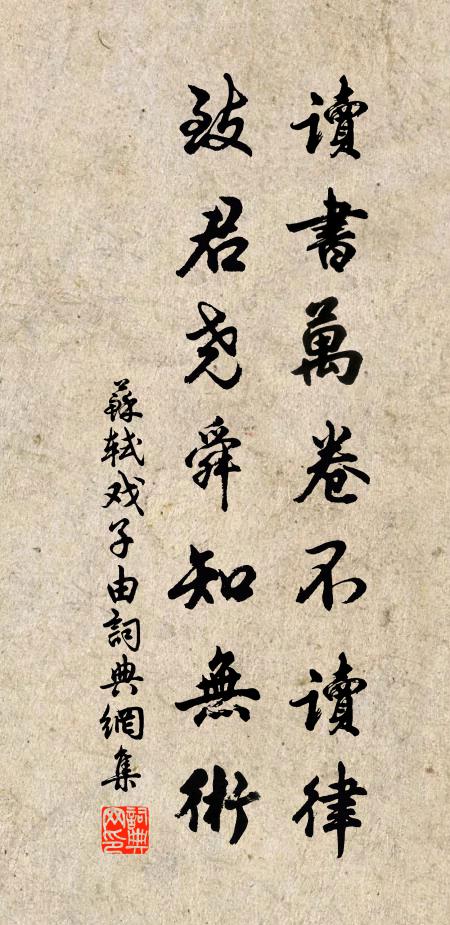 讀書萬卷不讀律
致君尧舜知無術
蘇軾戏子由詞典網集
詞典
网印